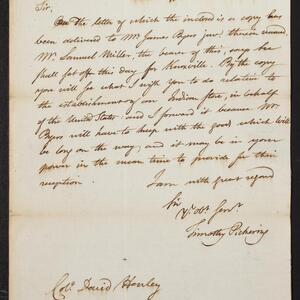 Sir,
The letter of which the inclosed is a copy has
been delivered to Mr. James Byers junr. therein named.
Mr. Samuel Miller, the bearer of this, says he
shall set off this day for Knoxville. By the copy
you will see what I wish you to do relative to
the establishment of an Indian store, in behalf
of the United States: and I forward it because Mr.
Byers will have to keep with the goods, which will
be long on the way; and it may be in your
power in the mean time to provide for their
reception.
I am with great regard
Sir
Yr. obt. Servt.
Timothy Pickering
Colo. David Henley